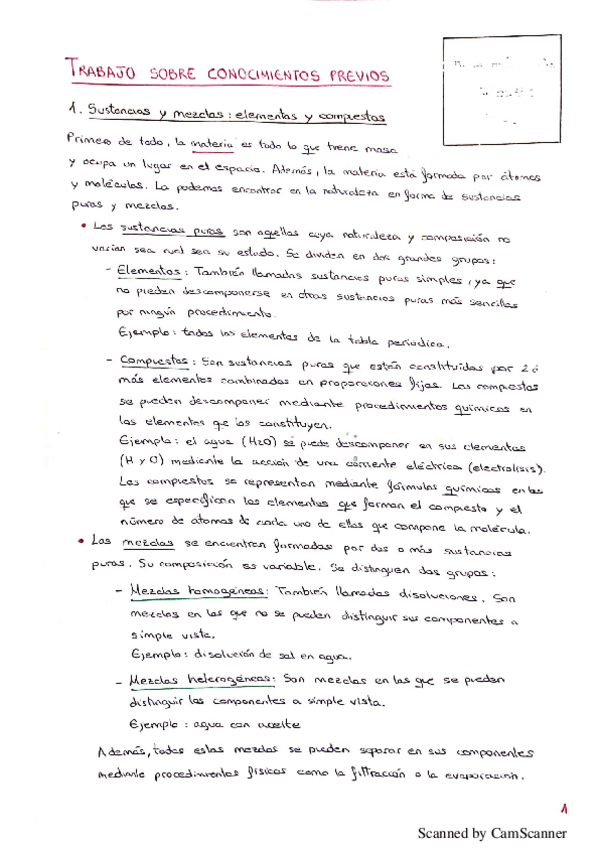 TRABAJO SOBRE CONOCIMIENTOS PREVIOS
1. Sustancias y mezclas: elementos y compuestos
Primero de todo, la materia es todo lo que tiene masa
y ocupa un lugar en el espacio. Además, la materia está formada por átomos
y moléculas. La podemos encontrar en la naturaleza en forma de sustancias
puras y mezclas.
• Las sustancias puras son aquellas cuya naturaleza y composición no
varían sea cual sea su estado. Se dividen en dos grandes grupos:
- Elementos: También llamadas sustancias puras simples, ya que
no pueden descomponerse en otras sustancias puras más sencillas
por ningún procedimiento.
Ejemplo: todos los elementos de la tabla periódica.
- Compuestos: Son sustancias puras que están constituidas por 2 ó
más elementos combinados en proporciones fijas. Los compuestos
se pueden descomponer mediante procedimientos químicos en
los elementos que los constituyen.
Ejemplo: el agua (H2O) se puede descomponer en sus elementos
(H y O) mediante la acción de una corriente eléctrica (electrolisis).
Los compuestos se representan mediante fórmulas químicas en las
que se especifican los elementos que forman el compuesto y el
número de átomos de cada uno de ellos que compone la molécula.
• Las mezclas se encuentran formadas por dos o más sustancias
puras. Su composición es variable. Se distinguen dos grupos:
- Mezclas homogéneas: También llamadas disoluciones. Son
mezclas en las que no se pueden distinguir sus componentes a
simple vista.
Ejemplo: disolución de sal en agua.
- Mezclas heterogéneas: Son mezclas en las que se pueden
distinguir los componentes a simple vista.
Ejemplo: agua con aceite
Además, todas estas mezclas se pueden separar en sus componentes
mediante procedimientos físicos como la filtración o la evaporación.
1
Scanned by CamScanner